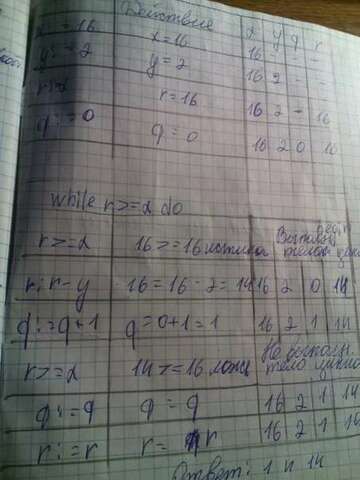 Действие x y q r
x := 16 x = 16 16 - - -
y := 2 y = 2 16 2 - -
r := x r = 16 16 2 - 16
q := 0 q = 0 16 2 0 16
while r >= x do
r >= x 16 >= 16 истина
r: r - y 16 = 16 - 2 = 14 16 2 0 14
q := q + 1 q = 0 + 1 = 1 16 2 1 14
r >= x 14 >= 16 ложь Не выполн. тело цикла
q := q q = q 16 2 1 14
r := r r = r 16 2 1 14
Ответ: 1 и 14